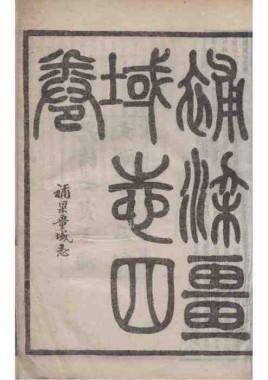 補梁疆
域志四
卷
補梁疆域志